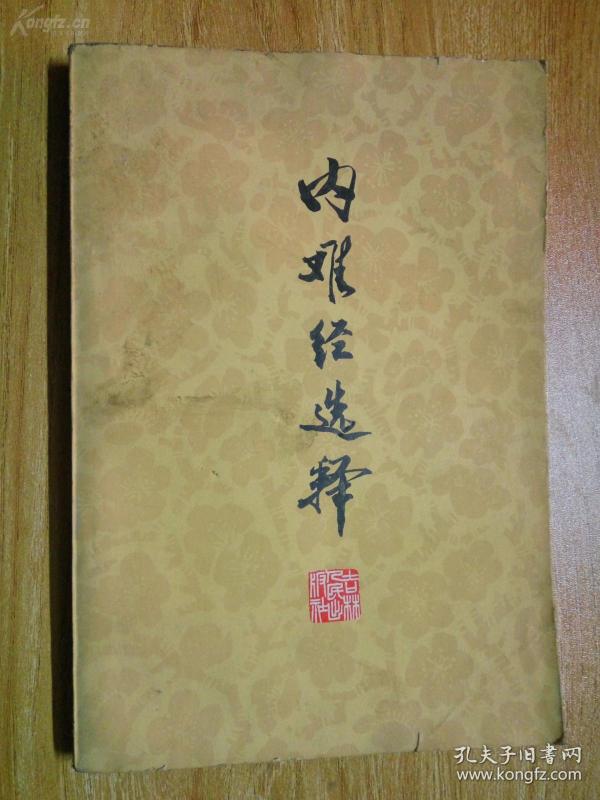 Kongfz.cn
内难经选释
吉林
人民出
版社
孔夫子旧书网
www.kongfz.com